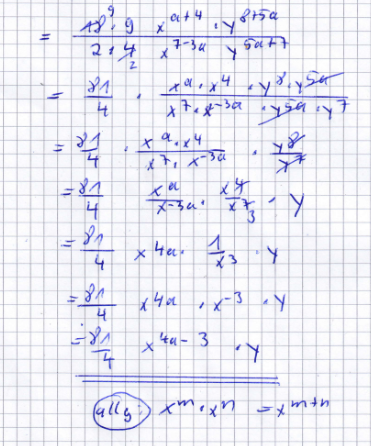 = 18⁹ · 9 x^{a+4} · y^{8+5a} / 2 · 4₂ x^{7-3a} y^{5a+7}
= 81/4 · x^a · x^4 · y^8 · y^{5a} / x^7 · x^{-3a} · y^{5a} · y^7
= 81/4 · x^a · x^4 / x^7 · x^{-3a} · y^8 / y^7
= 81/4 x^a / x^{-3a} · x^4 / x^7₃ · y
= 81/4 x^{4a} · 1/x^3 · y
= 81/4 x^{4a} · x^{-3} · y
= 81/4 x^{4a-3} · y
allg: x^m · x^n = x^{m+n}